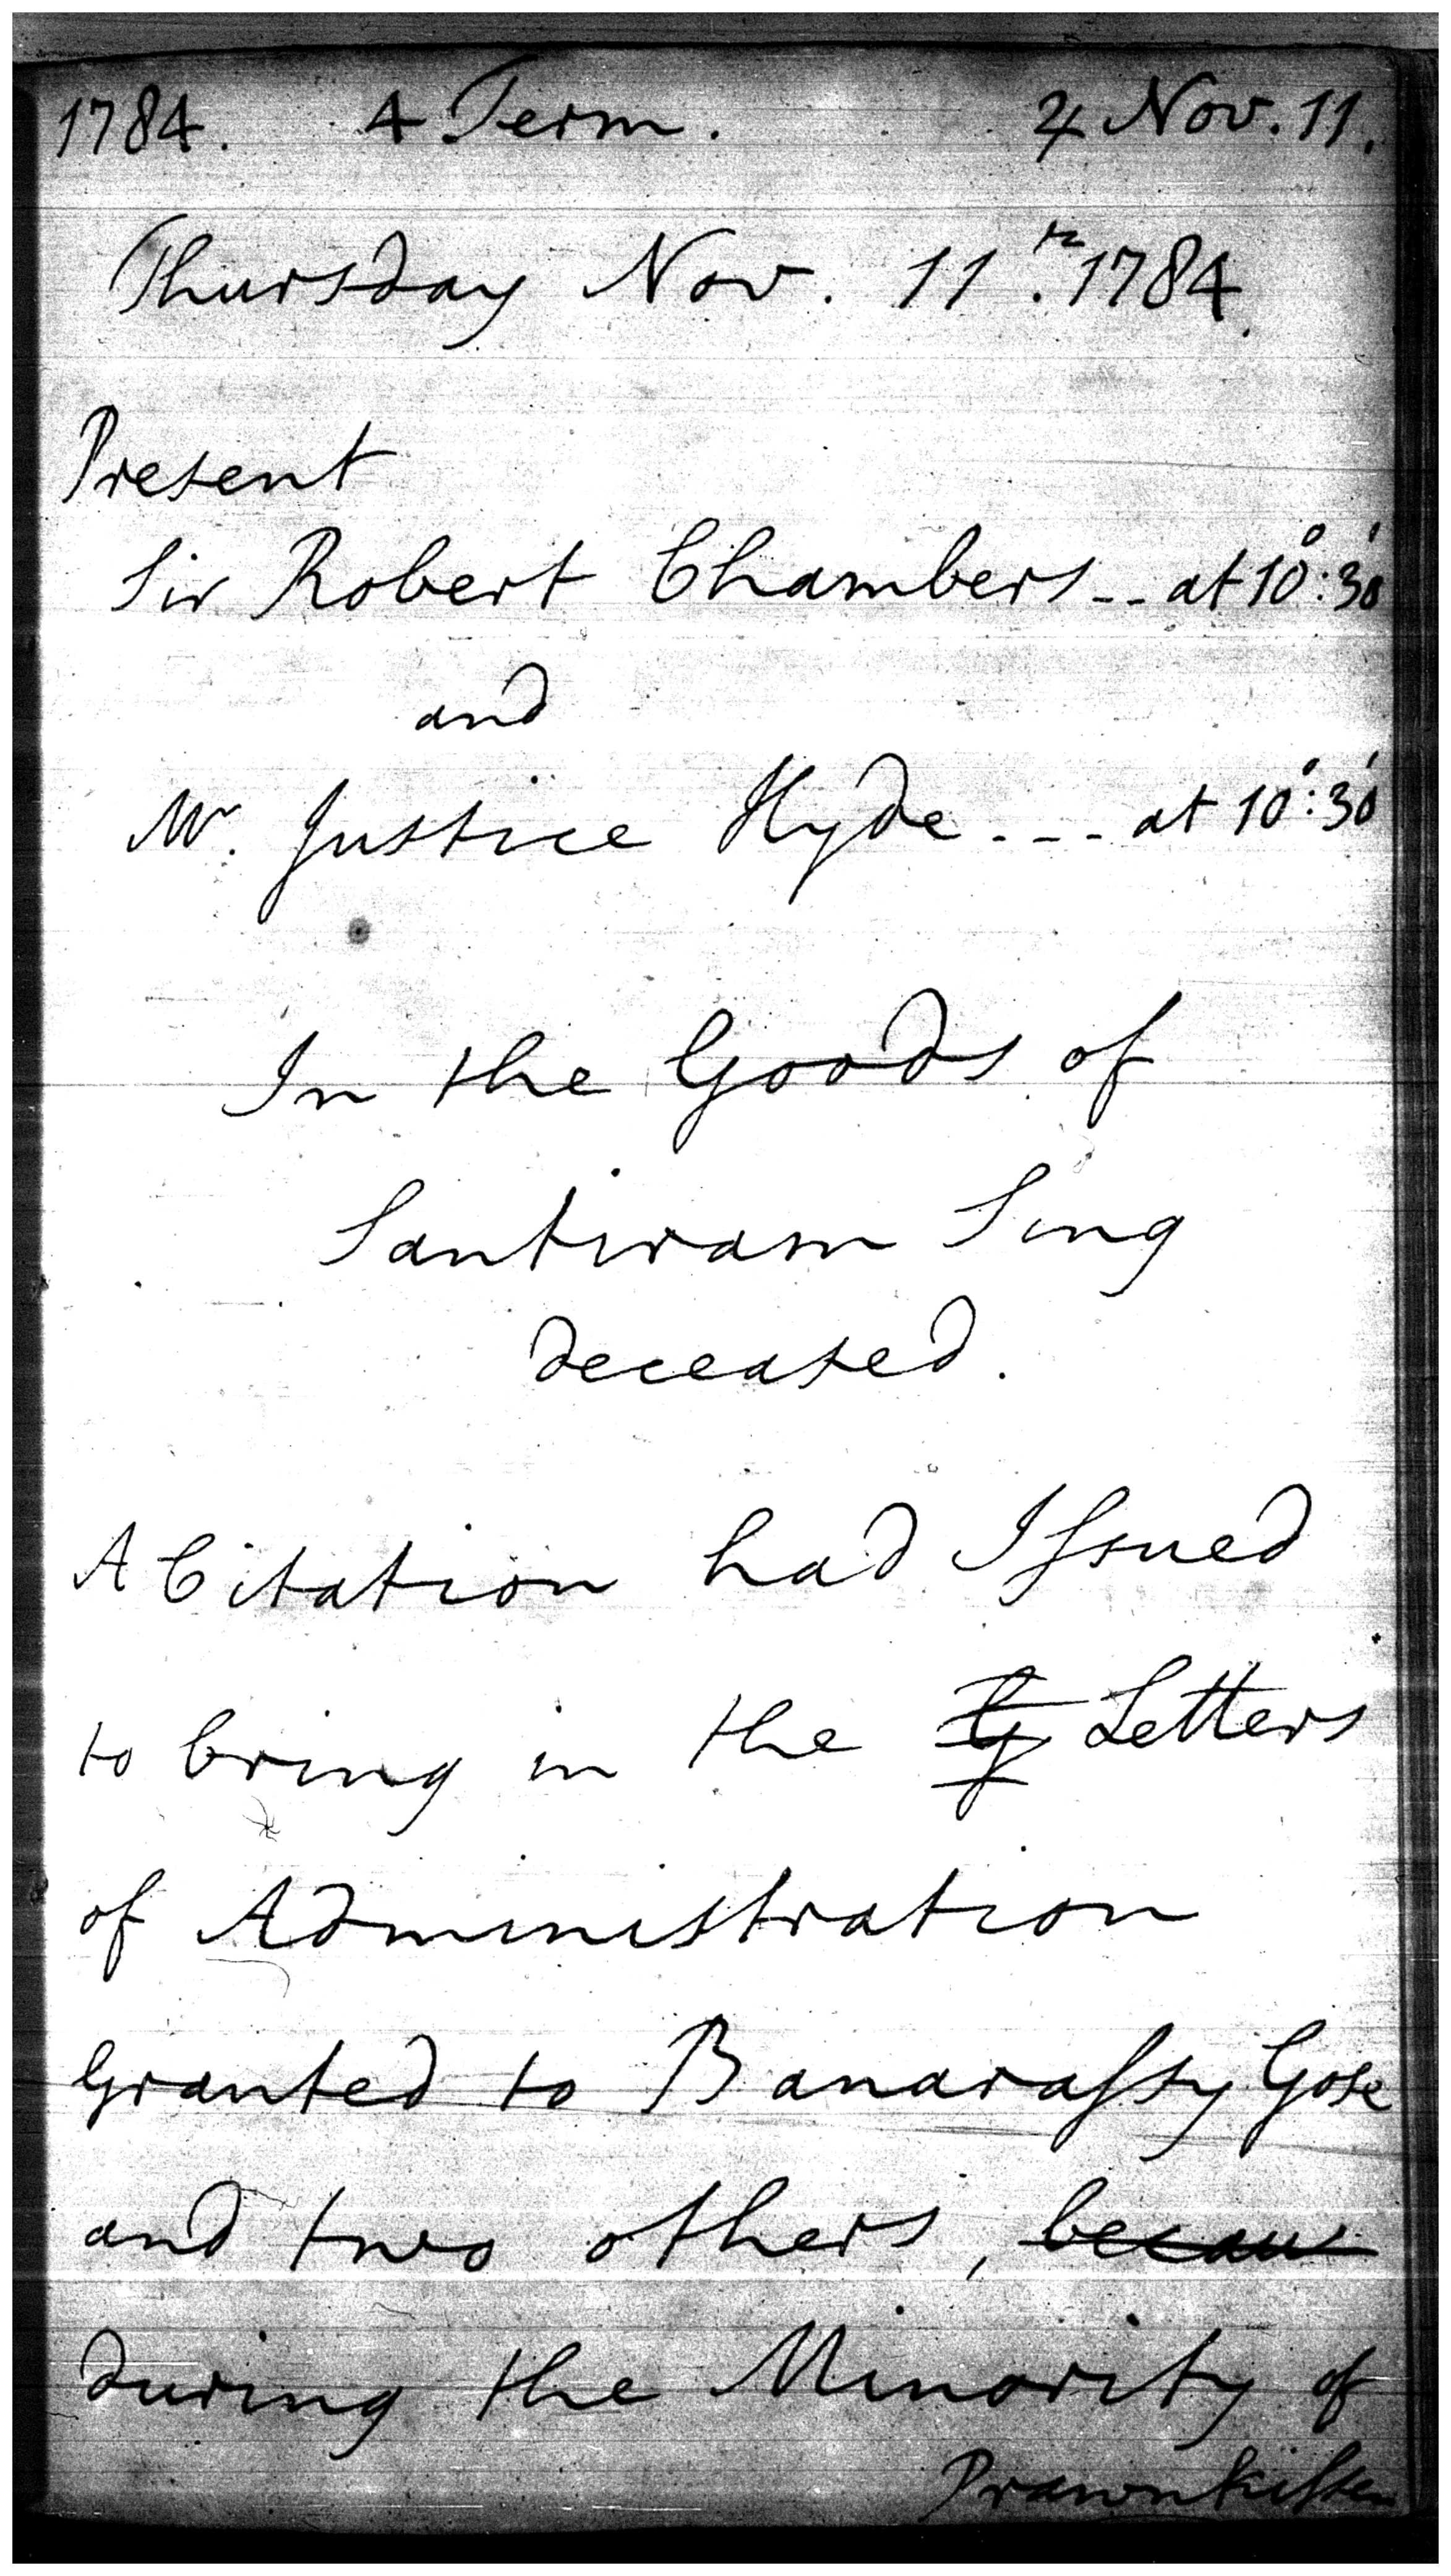 1784. 4 Term. ♃ Nov. 11.
Thursday Nov. 11th. 1784.
Present
Sir Robert Chambers -- at 10°:30'
and
Mr. Justice Hyde --- at 10°:30'
In the Goods of
Santiram Sing
deceased.
A Citation had Issued
to bring in the G Letters
of Administration
Granted to Banarassy Gose
and two others, becaus
during the Minority of
Prawnkissen